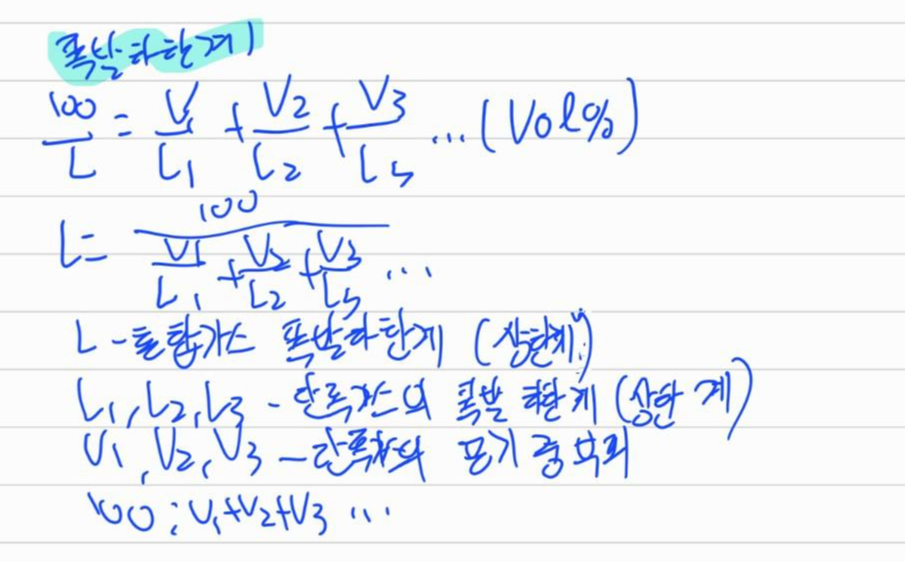 폭발하한계
100/L = V1/L1 + V2/L2 + V3/L3 ... (Vol%)
L = 100 / (V1/L1 + V2/L2 + V3/L3 ...
L - 혼합가스 폭발하한계 (상한계)
L1, L2, L3 - 단독가스의 폭발 하한계 (상한계)
V1, V2, V3 - 단독가스의 공기 중 부피
100 : V1+V2+V3 ...